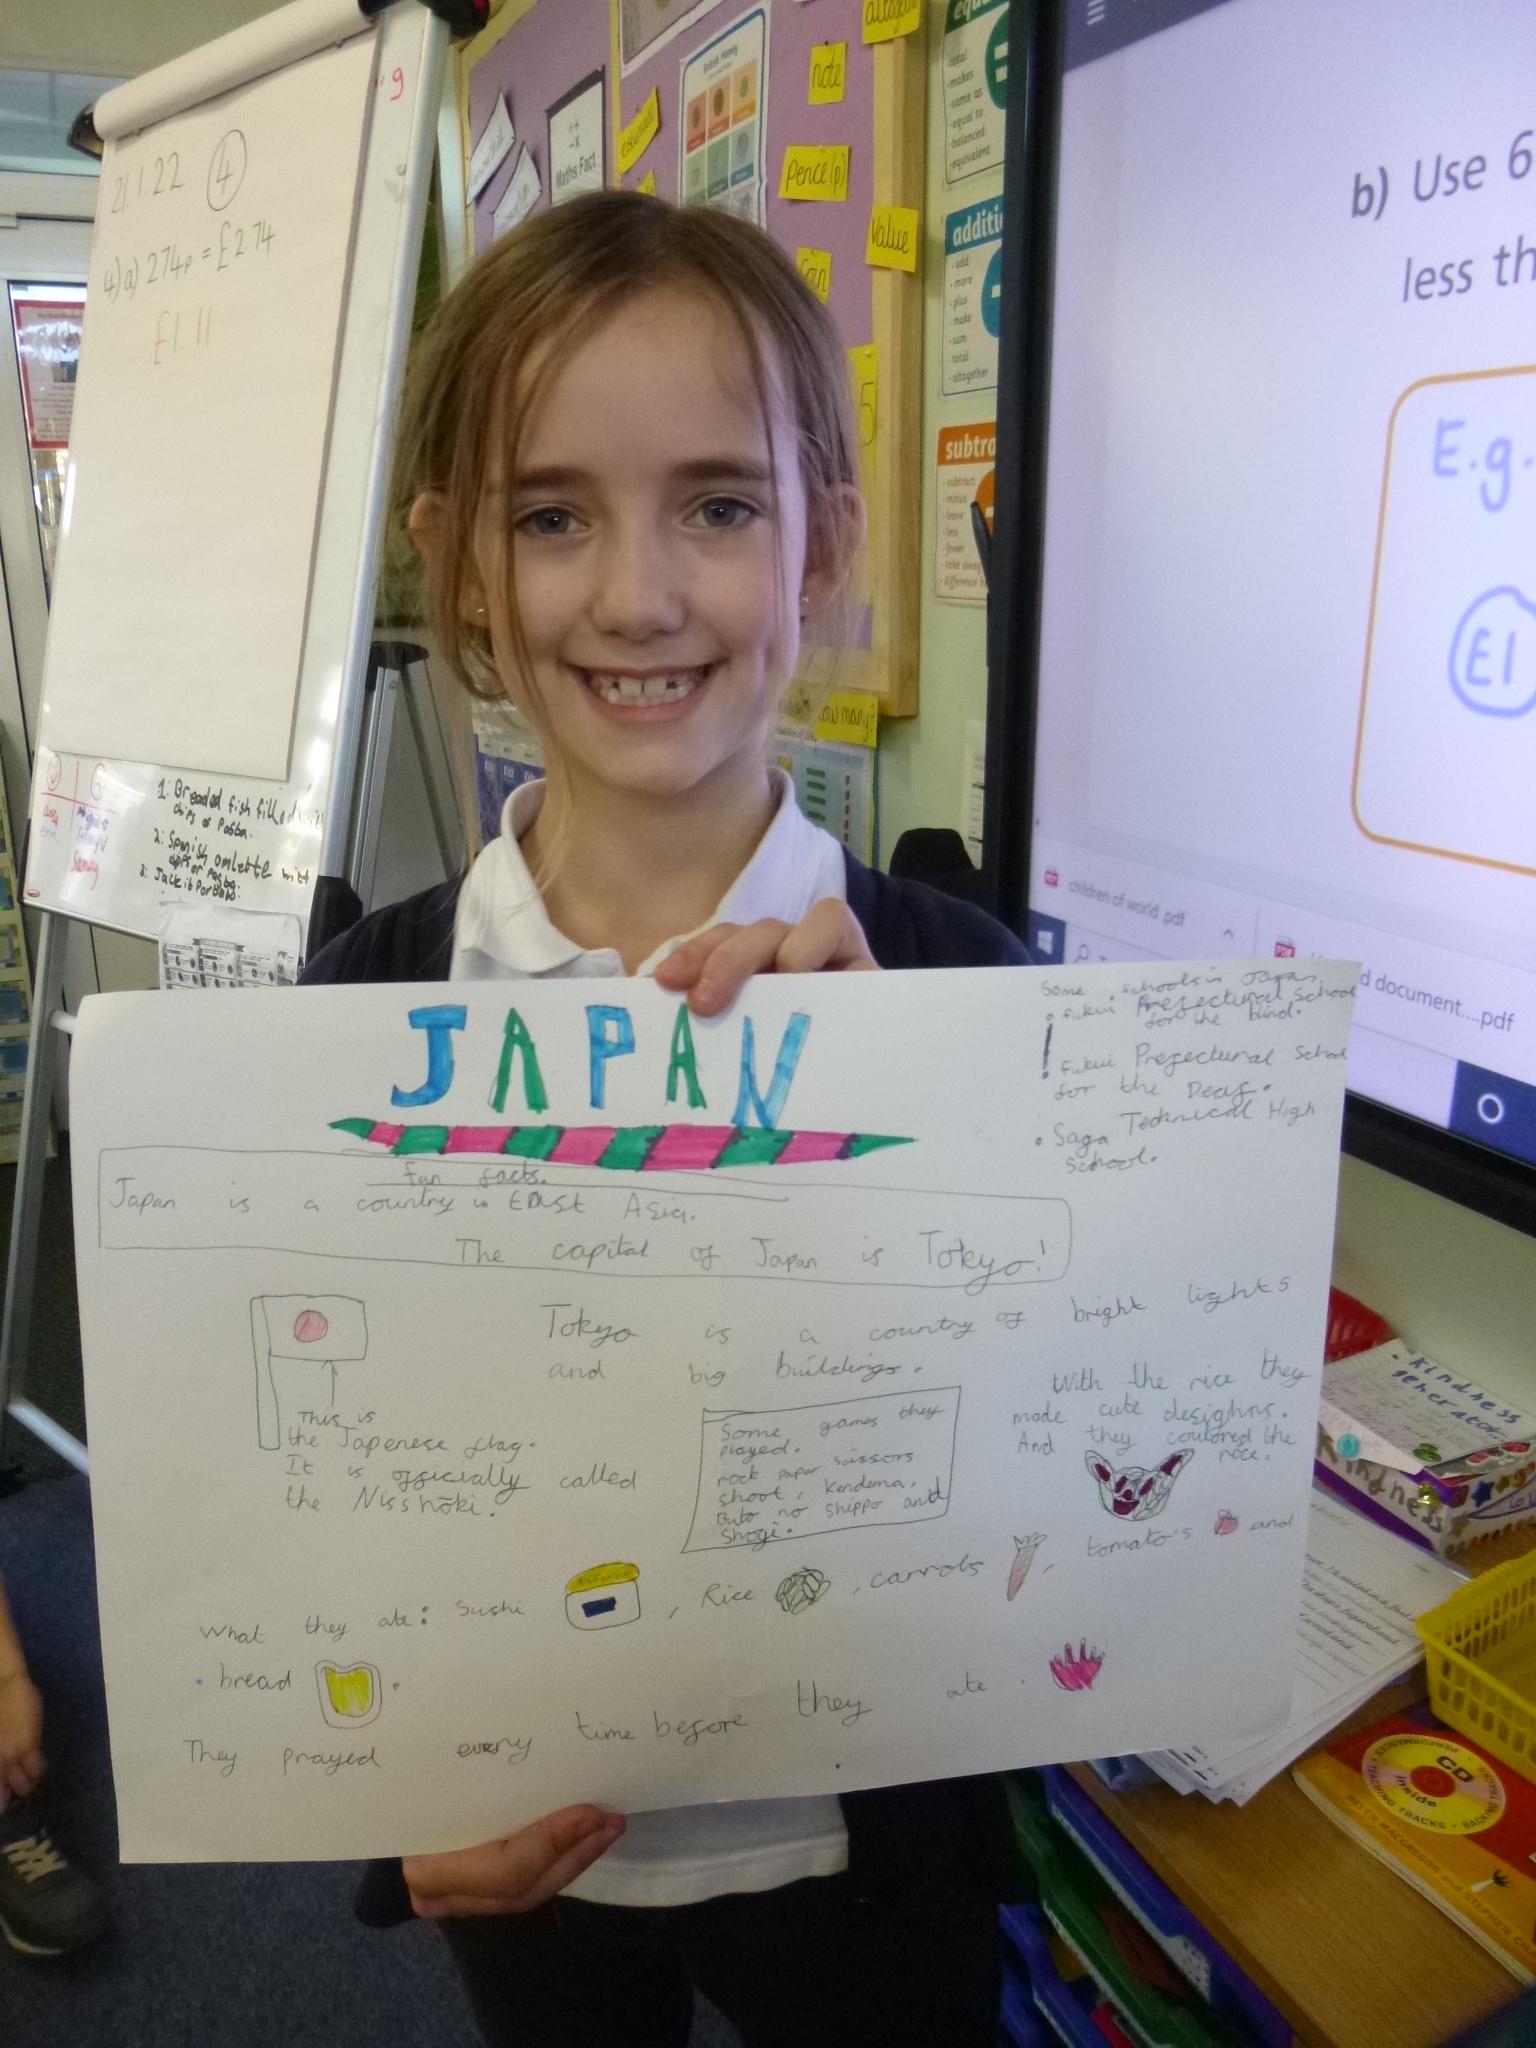 21.1.22 4
4)a) 274p = £2.74
£1.11
9
6
1: Breaded fish filled with
chips or Pasta.
2: Spanish omlette with
chips or Pasta.
3: Jackit Portato.
Maths Fact
British Money
altogether
note
Pence(p)
Value
Coin
5
how many?
total
makes
same as
equal to
balanced
equivalent
additi
add
more
plus
make
sum
total
altogether
subtra
subtract
minus
leave
less
fewer
take away
difference b
b) Use 6
less th
E.g.
£1
children of world .pdf
d document....pdf
JAPAN
Some schools in Japan.
Fukui Prefectural School
for the blind.
Fukui Prefectural School
for the Deaf.
Saga Technical High
School.
fun facts.
Japan is a country in EAST Asia.
The capital of Japan is Tokyo!
Tokyo is a country of bright lights
and big buildings.
This is
the Japenese flag.
It is officially called
the Nisshōki.
Some games they
played.
rock paper scissors
shoot, kendema,
Buto no shippo and
Shogi.
With the rice they
made cute desighns.
And they coulored the
rice.
What they ate: Sushi , Rice , carrots , tomato's and
bread .
They prayed every time before they ate.
kindness
generator
kindness
PERFORMANCES
CD
inside
TEACHING TRACKS • BACKING TRACKS
HELEN MACGREGOR AND STEPHEN